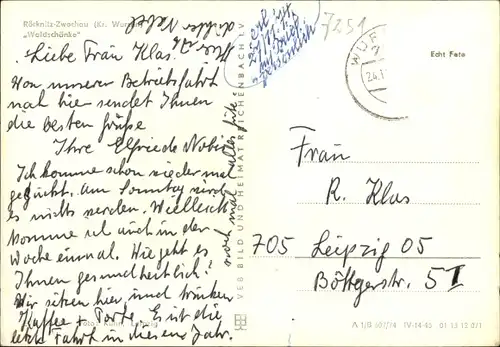 Röcknitz-Zwochau (Kr. Wurzen)
„Waldschänke"
7251
Liebe Frau Klas.
Von unserer Betriebsfahrt
nach hier sendet Ihnen
die besten Grüße
Ihre Elfriede Nobis
Ich komme schon wieder mal
gerückt. Am Sonntag wird
es nichts werden. Vielleicht
komme ich auch in der
Woche einmal. Wie geht es
Ihnen gesundheitlich?
Wir sitzen hier, und trinken
Kaffee + Torte. Es ist die
letzte Fahrt in diesem Jahr.
noch mal alles Gute
VEB BILD UND HEIMAT REICHENBACH I. V.
Echt Foto
Frau
R. Klas
705 Leipzig 05
Böttgerstr. 5 II
A 1/B 507/74 IV-14-45 01 13 12 071